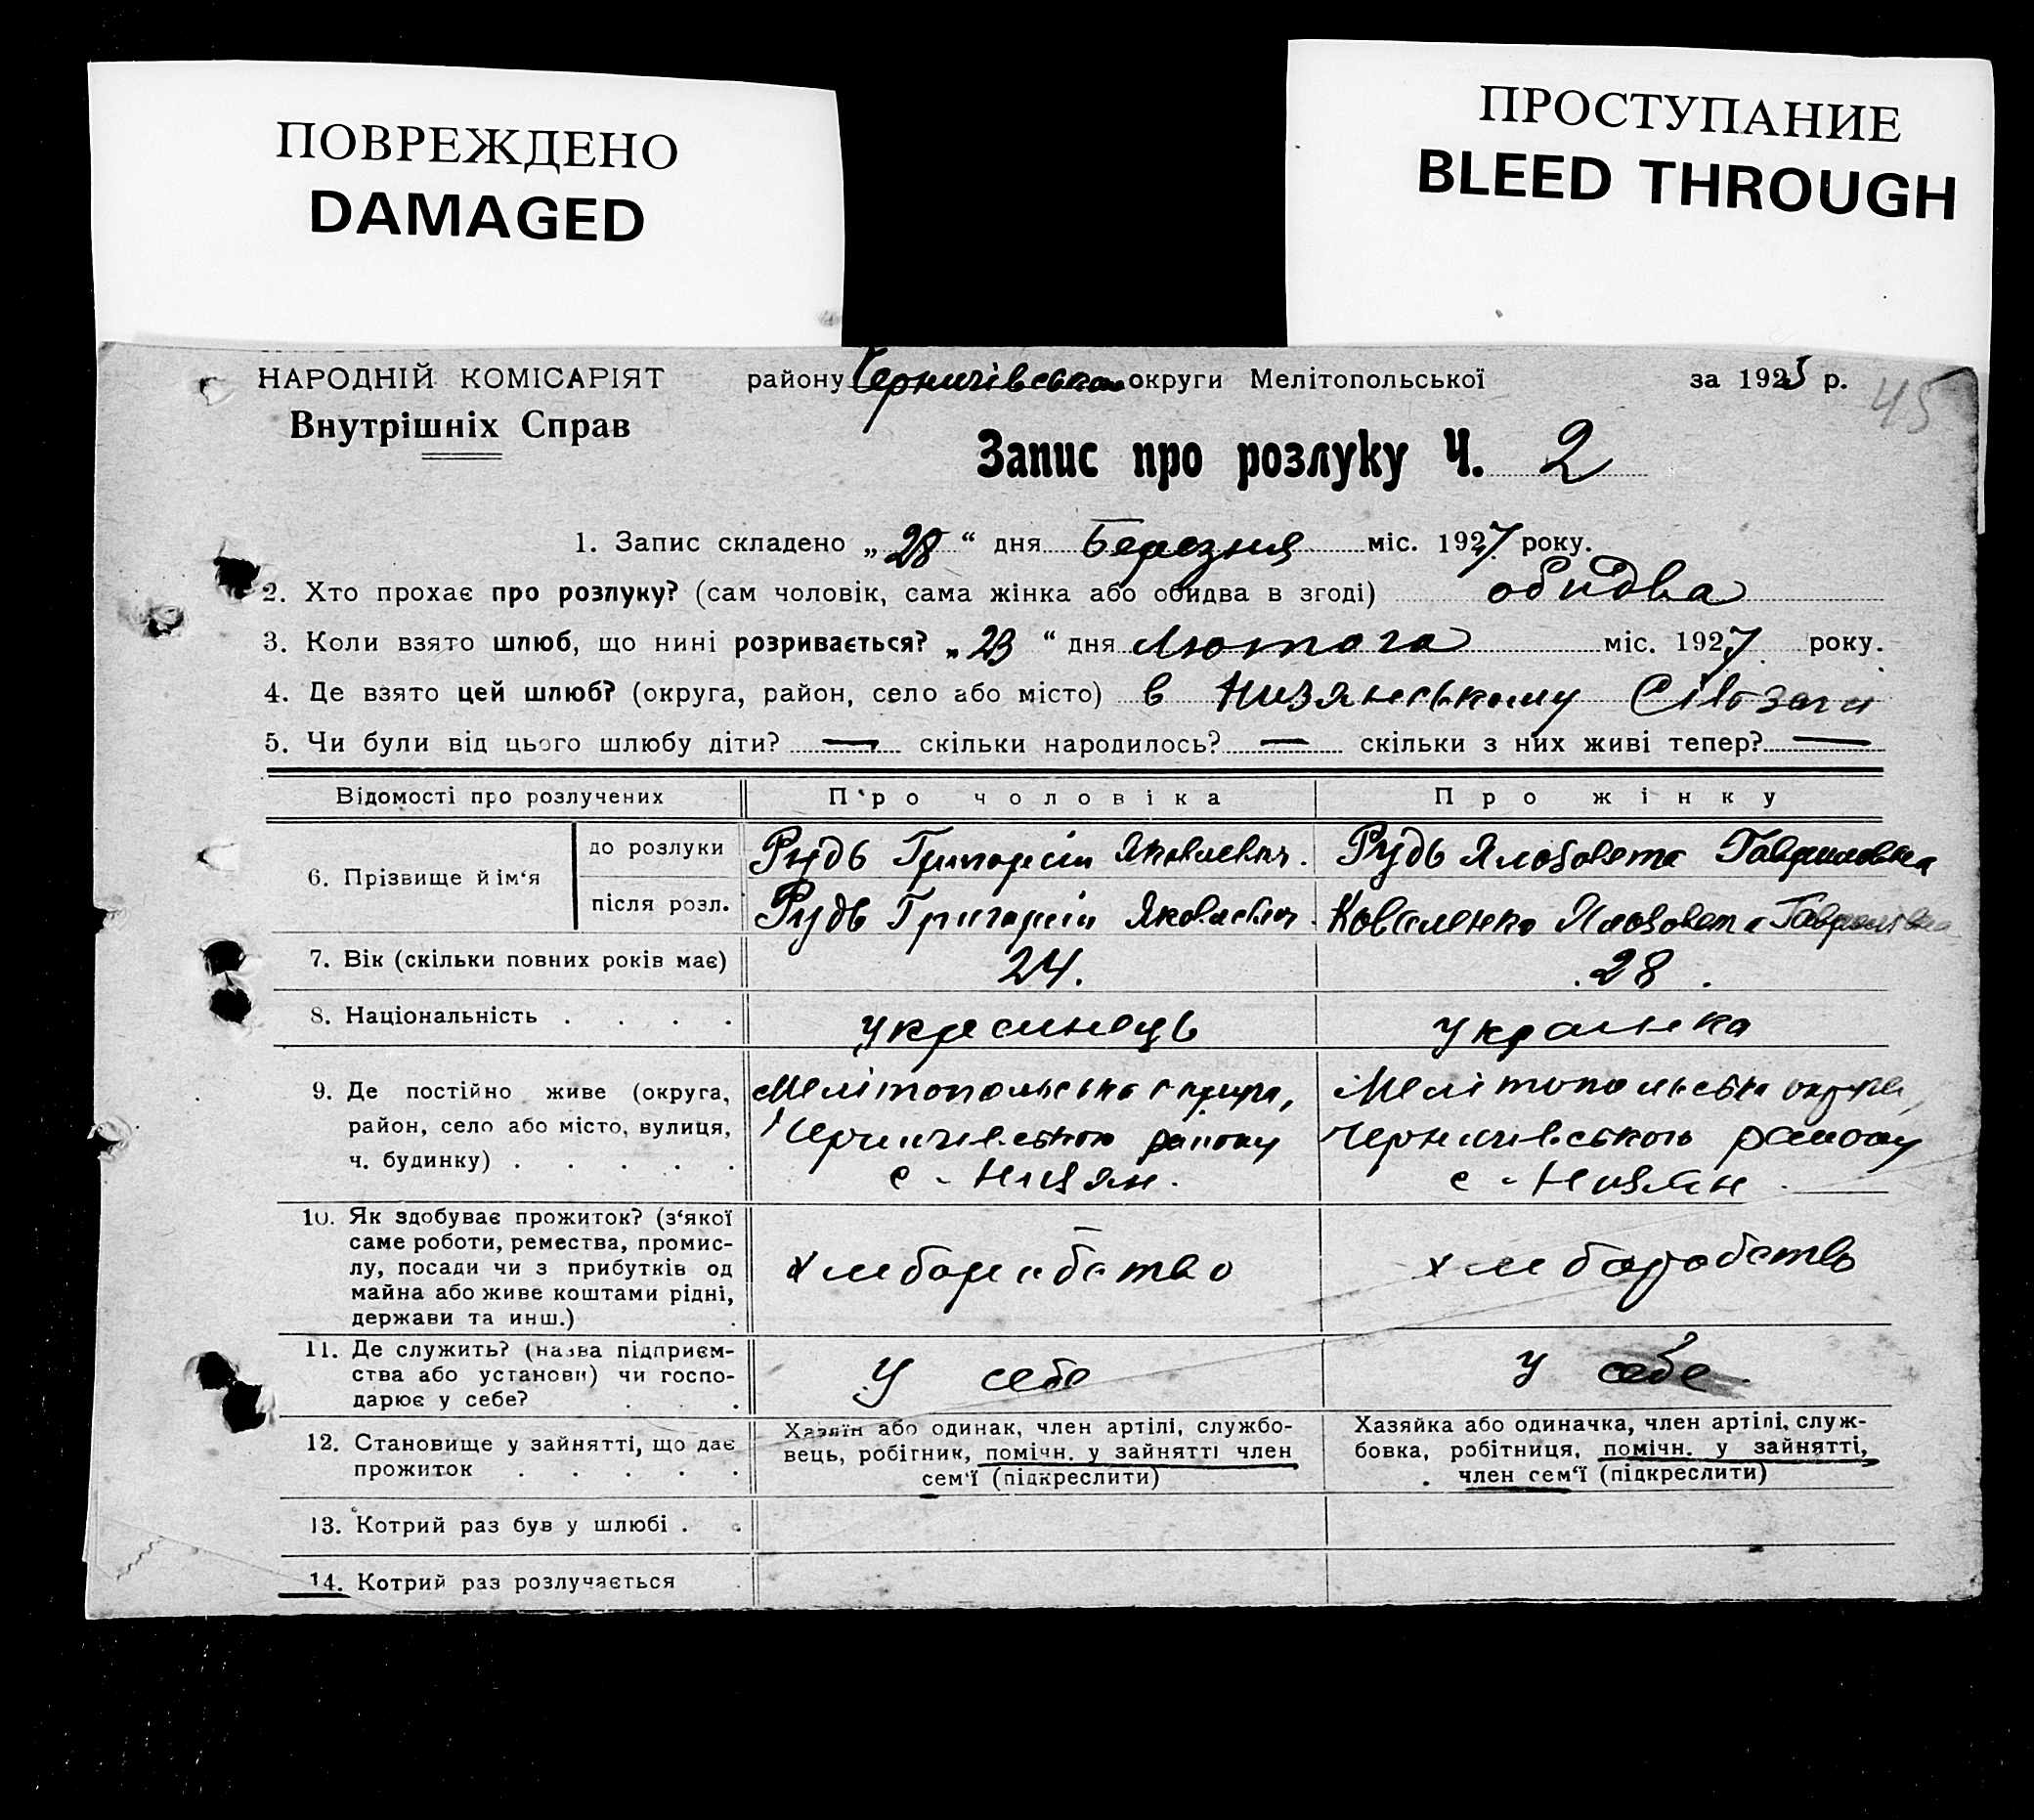 ПОВРЕЖДЕНО
DAMAGED
ПРОСТУПАНИЕ
BLEED THROUGH
НАРОДНІЙ КОМІСАРІЯТ
Внутрішніх Справ
району округи Мелітопольської за 1925 р.
45
Запис про розлуку Ч. 2
1. Запис складено „28“ дня Березня міс. 1927 року.
2. Хто прохає про розлуку? (сам чоловік, сама жінка або обидва в згоді) обидва
3. Коли взято шлюб, що нині розривається? „23“ дня Лютого міс. 1927 року.
4. Де взято цей шлюб? (округа, район, село або місто) в Низянському
5. Чи були від цього шлюбу діти? — скільки народилось? — скільки з них живі тепер? —
Відомості про розлучених
Про чоловіка
Про жінку
6. Прізвище й ім‘я
до розлуки
Рудь Григорій Яковлевич.
Рудь Ялозовета Гавриловна
після розл.
Рудь Григорій Яковлевич.
Коваленко Ялозовета Гаврилівна
7. Вік (скільки повних років має)
24.
28.
8. Національність . . . .
українець
украинка
9. Де постійно живе (округа,
район, село або місто, вулиця,
ч. будинку) . . . . .
Мелітопольська округа,
району
с. Низян.
Мелітопольська округа,
району
с. Низян.
10. Як здобуває прожиток? (з‘якої
саме роботи, ремества, промис-
лу, посади чи з прибутків од
майна або живе коштами рідні,
держави та инш.)
хлиборобство
хлиборобство
11. Де служить? (назва підприєм-
ства або установи) чи госпо-
дарює у себе? . . .
у себе
у себе.
12. Становище у зайнятті, що дає
прожиток . . . . .
Хазяїн або одинак, член артілі, службо-
вець, робігник, помічн. у зайнятті член
сем‘ї (підкреслити)
Хазяйка або одиначка, член артілі, служ-
бовка, робітниця, помічн. у зайнятті,
член сем‘ї (підкреслити)
13. Котрий раз був у шлюбі . .
14. Котрий раз розлучається